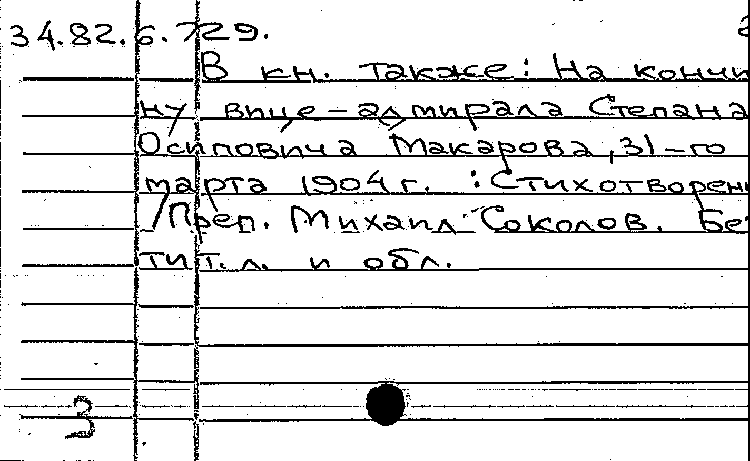 34.82.6.729.
В кн. также: На кончи
ну вице-адмирала Степана
Осиповича Макарова, 31-го
марта 1904 г. : Стихотворен
/Преп. Михаил Соколов. Бе
тит. л. и обл.
3